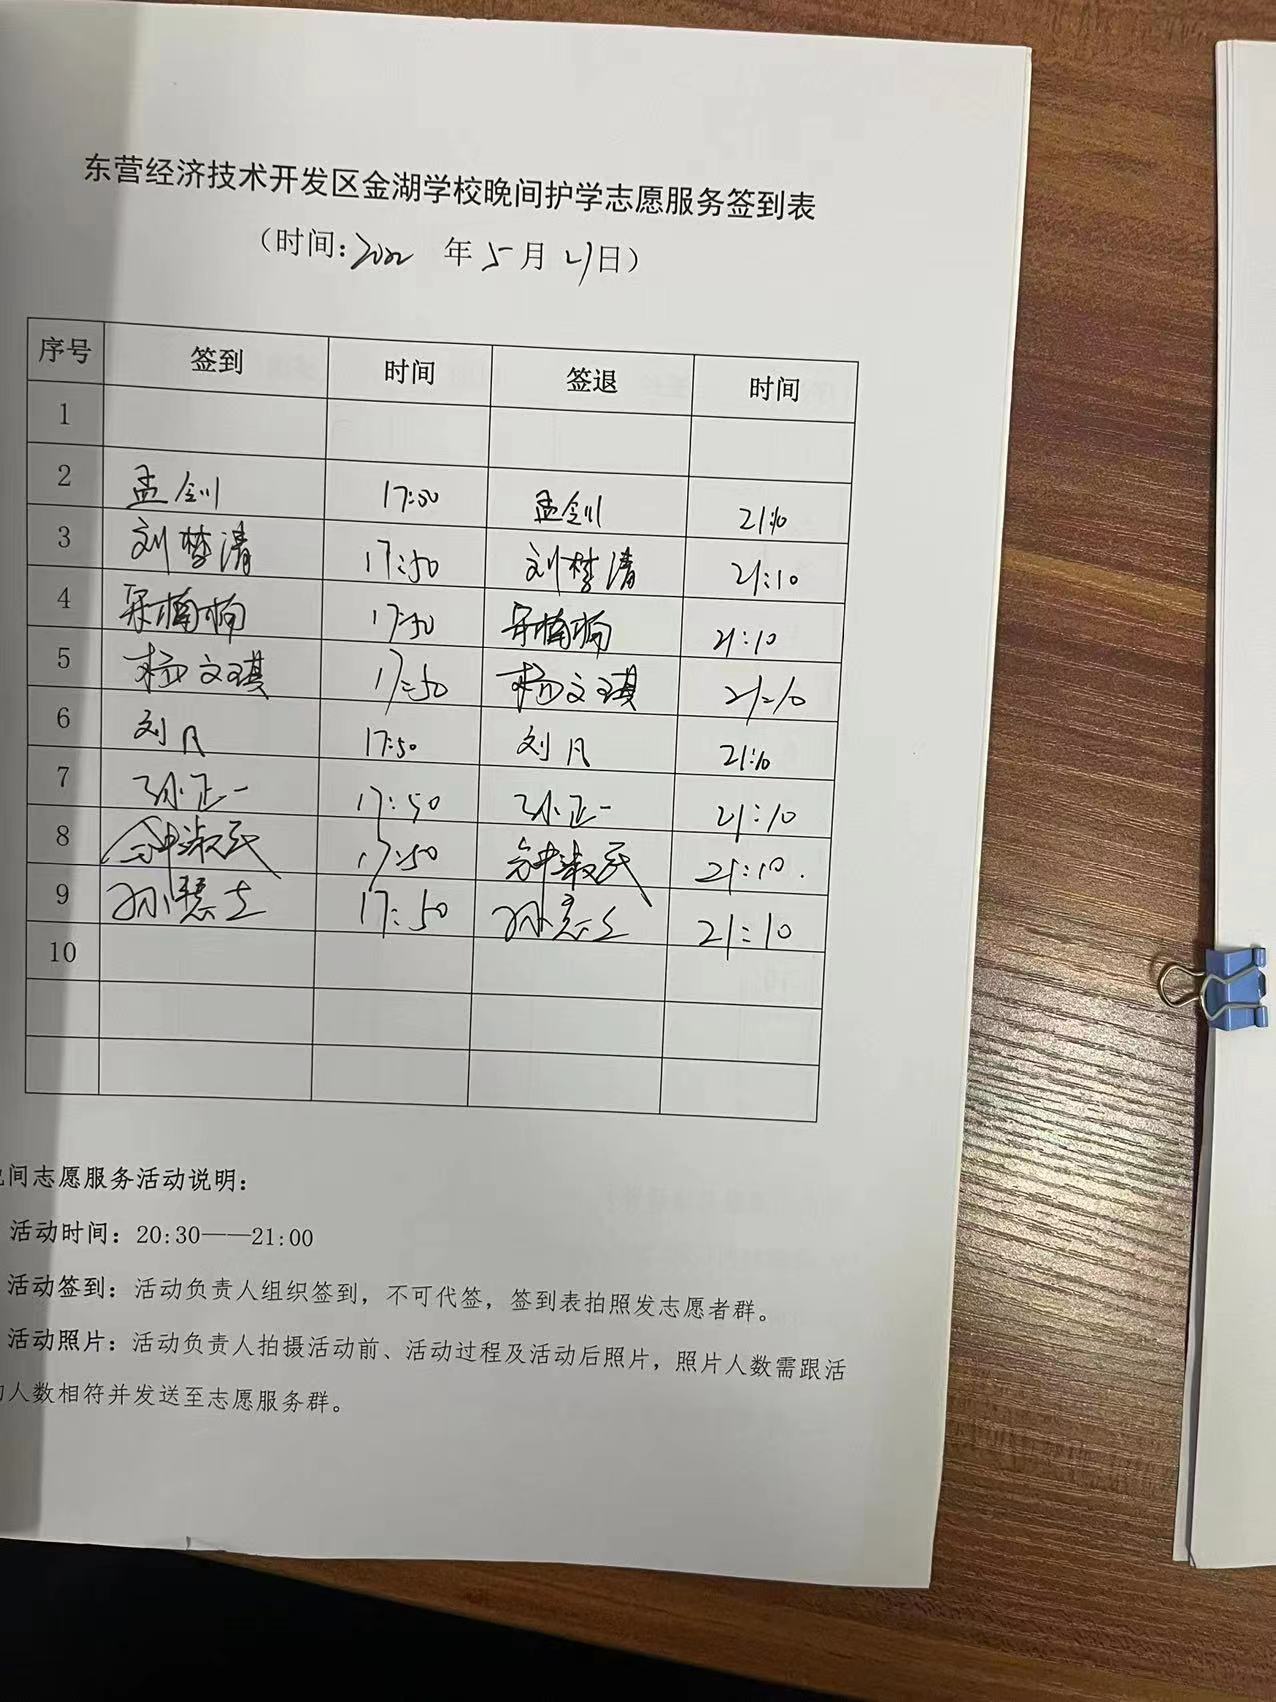 东营经济技术开发区金湖学校晚间护学志愿服务签到表
（时间：2022 年 5 月 21日）
序号 签到 时间 签退 时间
1
2 孟剑 17:50 孟剑 21:10
3 刘梦清 17:50 刘梦清 21:10
4 楠楠 17:50 楠楠 21:10
5 杨文琪 17:50 杨文琪 21:10
6 刘凡 17:50 刘凡 21:10
7 孙正一 17:50 孙正一 21:10
8 钟淑民 17:50 钟淑民 21:10.
9 孙慧 17:50 孙慧 21:10
10
间志愿服务活动说明：
活动时间：20:30——21:00
活动签到：活动负责人组织签到，不可代签，签到表拍照发志愿者群。
活动照片：活动负责人拍摄活动前、活动过程及活动后照片，照片人数需跟活
人数相符并发送至志愿服务群。